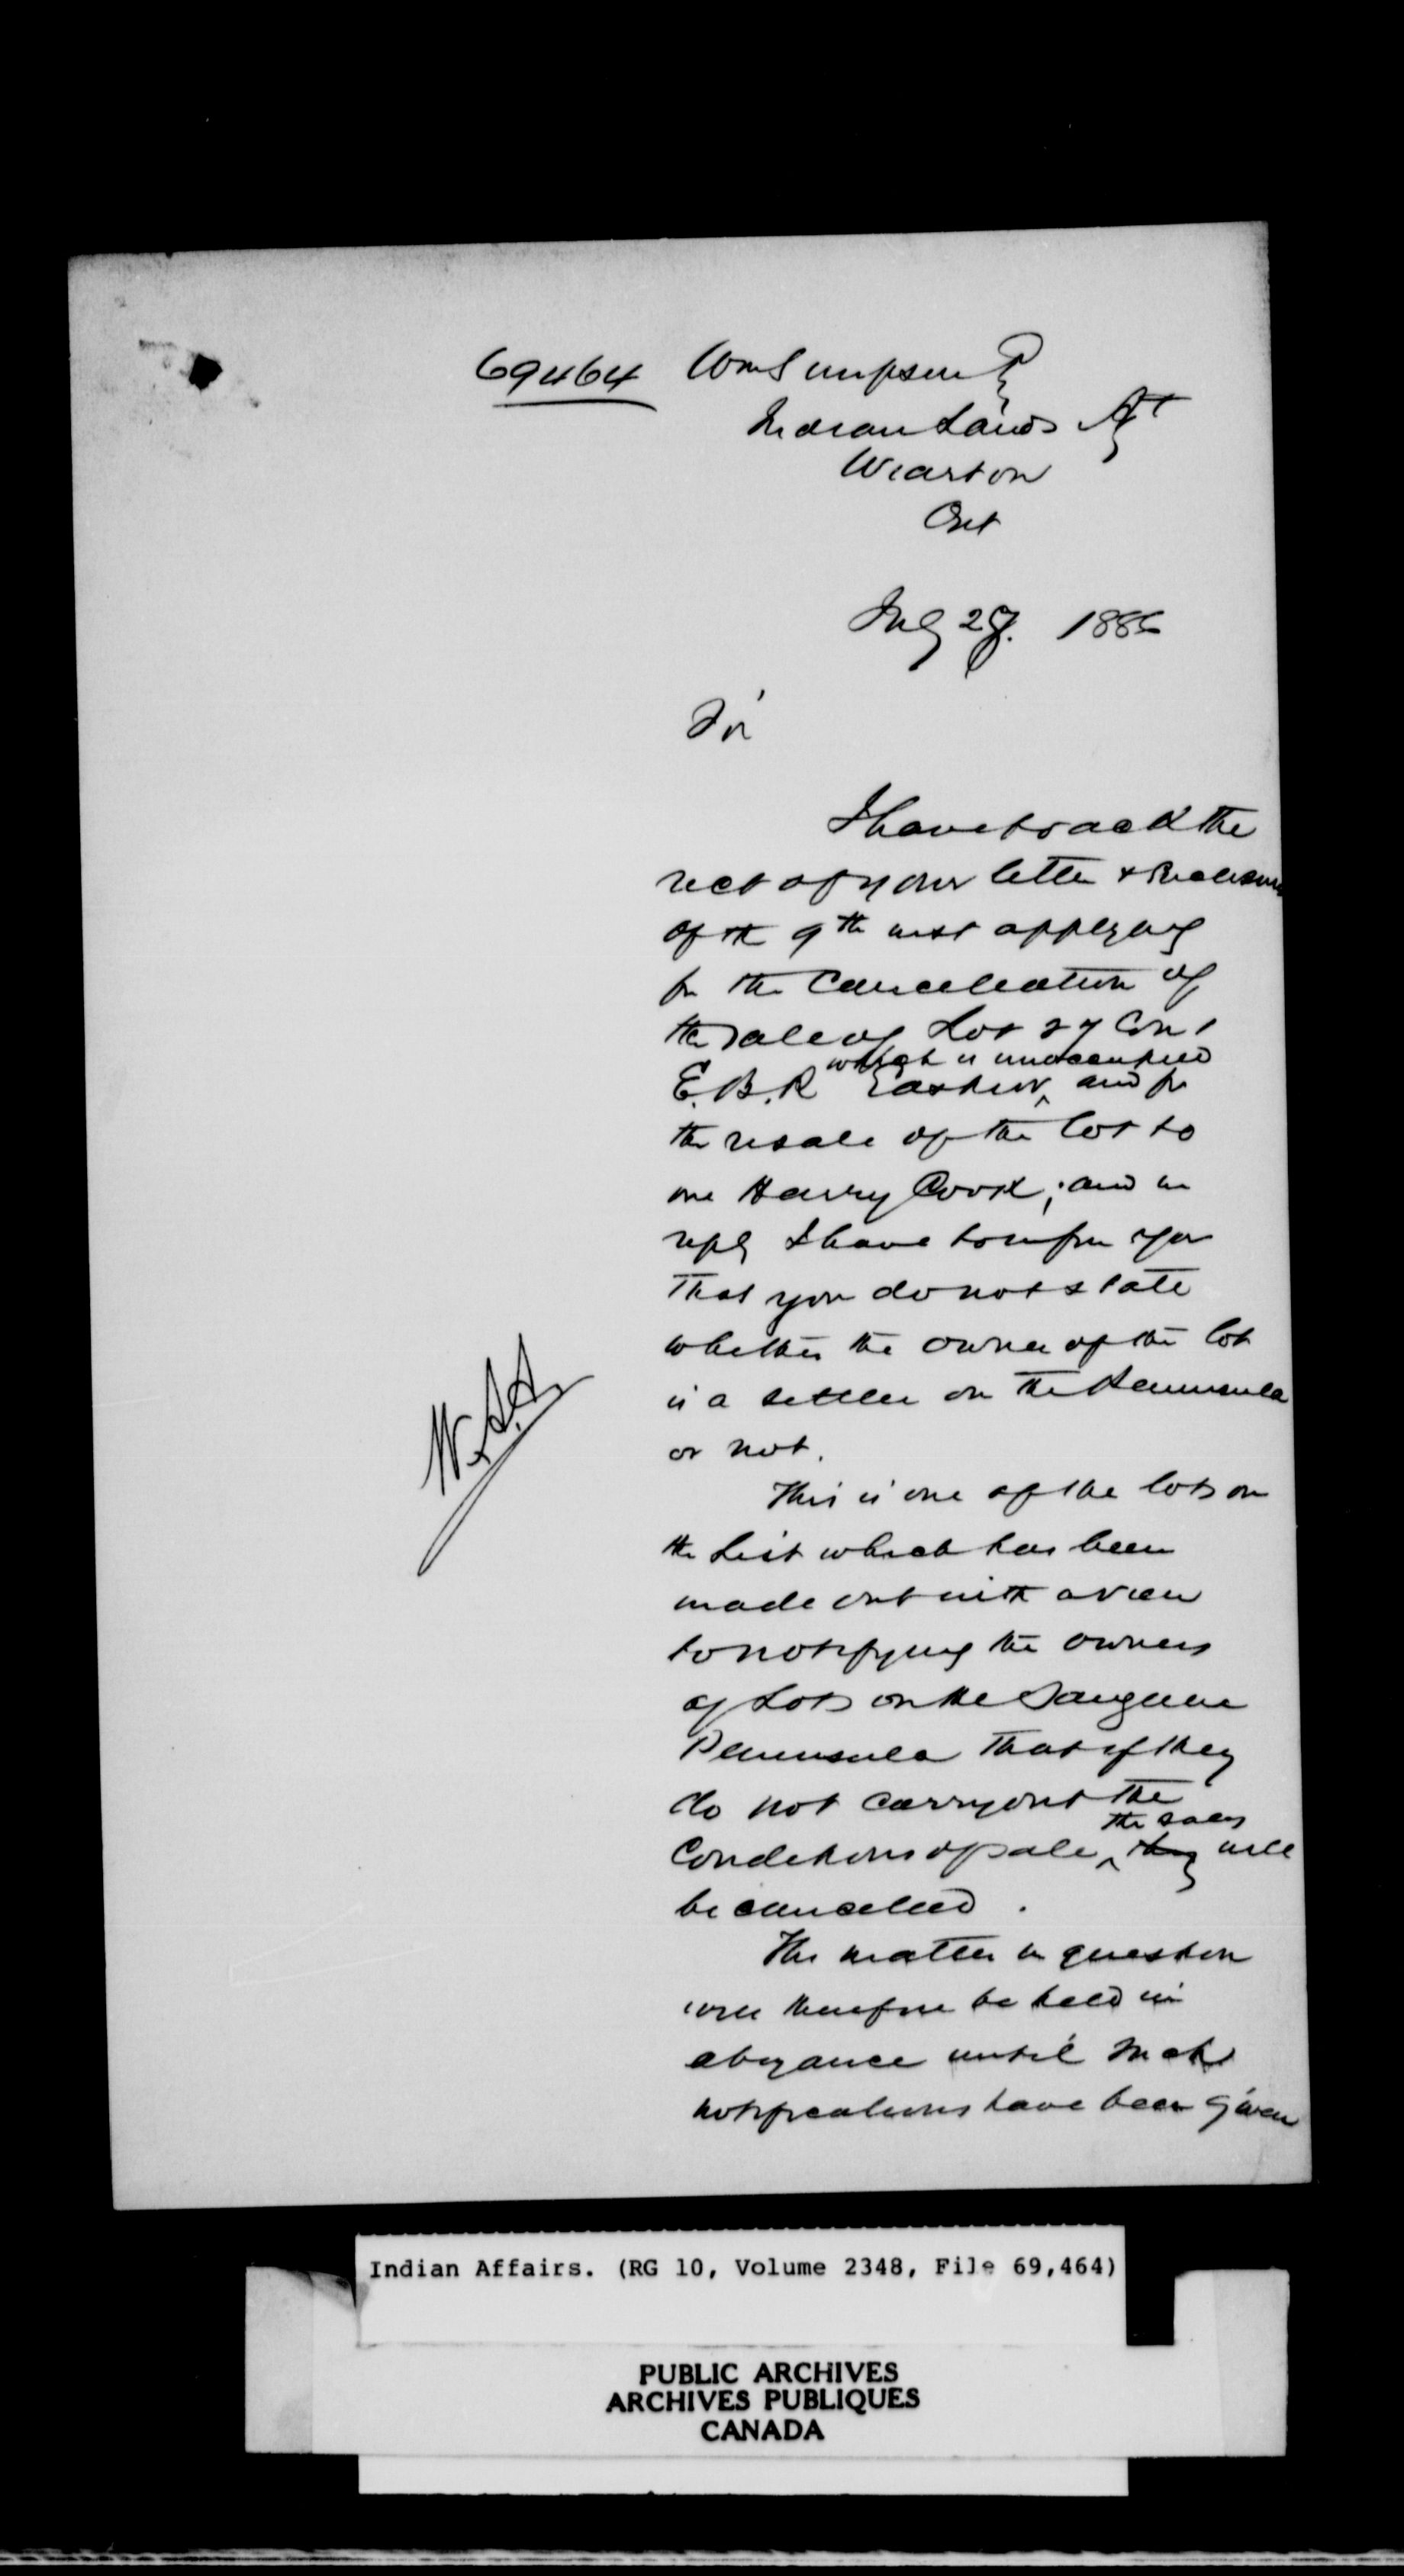 69464 Wm Simpson Esq
Indian Lands Agt
Wiarton
Ont
July 27. 1886
Sir
I have to ack the
rect of your letter & Enclosure
of the 9th inst applying
for the Cancellation of
the sale of Lot 27 Con 1
which is unoccupied
E.B.R Eastnor ‸ and for
the resale of the lot to
one Harry Cook; and in
reply I have to inform you
that you do not state
whether the owner of the lot
is a settler on the Peninsula
or not.
W.A.A.
This is one of the lots on
the List which has been
made out with a view
to notifying the owners
of Lots on the Saugeen
Peninsula that if they
do not carry out the
the sales
Conditions of sale, ‸ they will
be cancelled.
The matter in question
will therefore be held in
abeyance until such
notifications have been given
Indian Affairs. (RG 10, Volume 2348, File 69,464)
PUBLIC ARCHIVES
ARCHIVES PUBLIQUES
CANADA